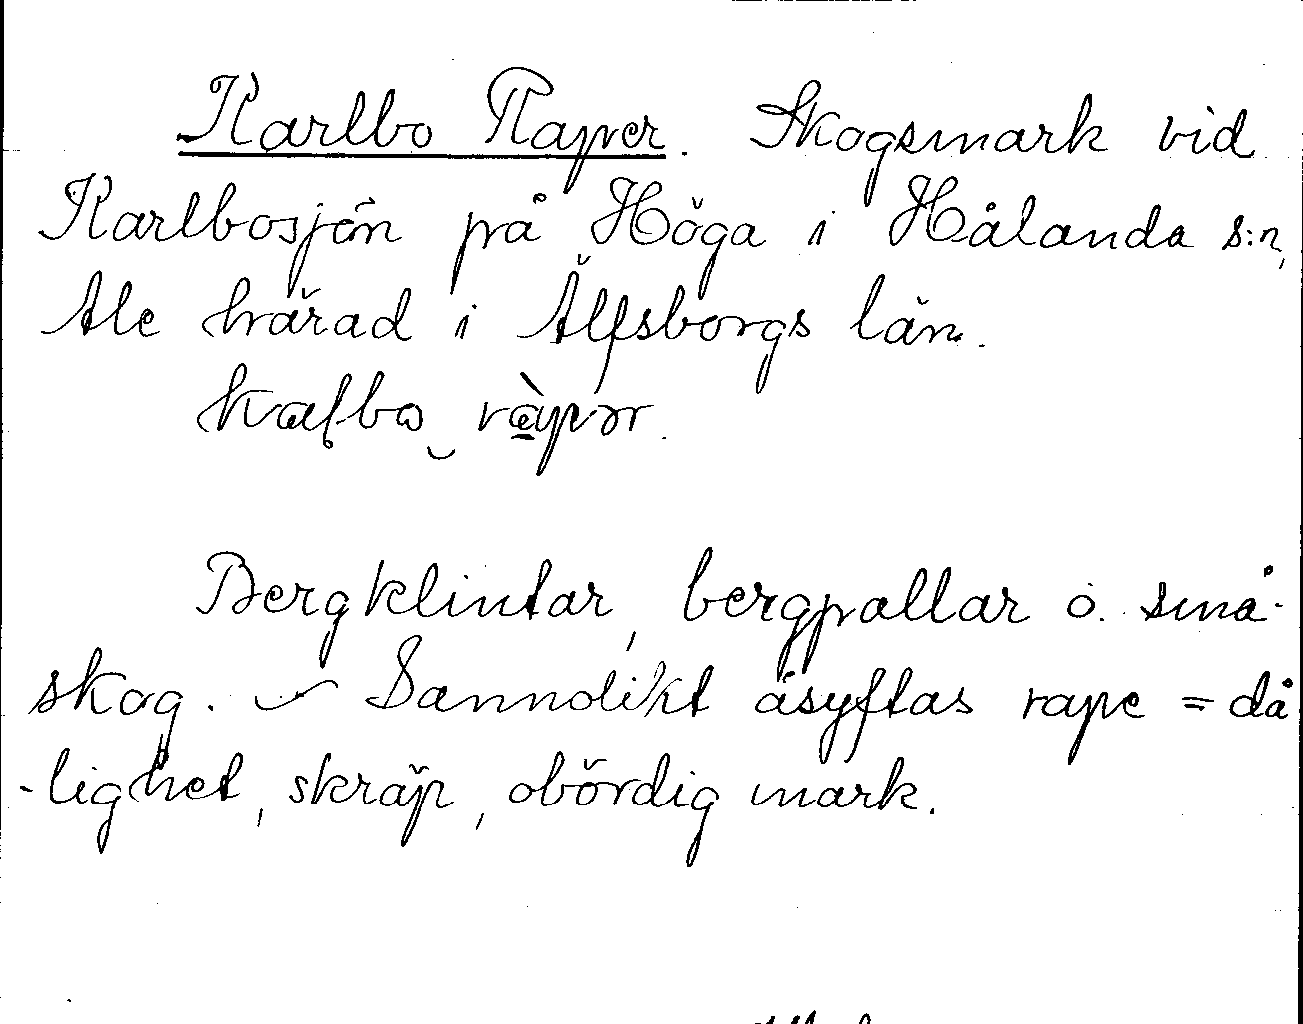 Karlbo Raper. Skogsmark vid
Karlbosjön på Höga i Hålanda s:n,
Ale härad i Älfsborgs län.
kaḷbo‿ ràpər.
Bergklintar, bergpallar o. små-
skog. ~ Sannolikt åsyftas rape = då
-lighet, skräp, obördig mark.